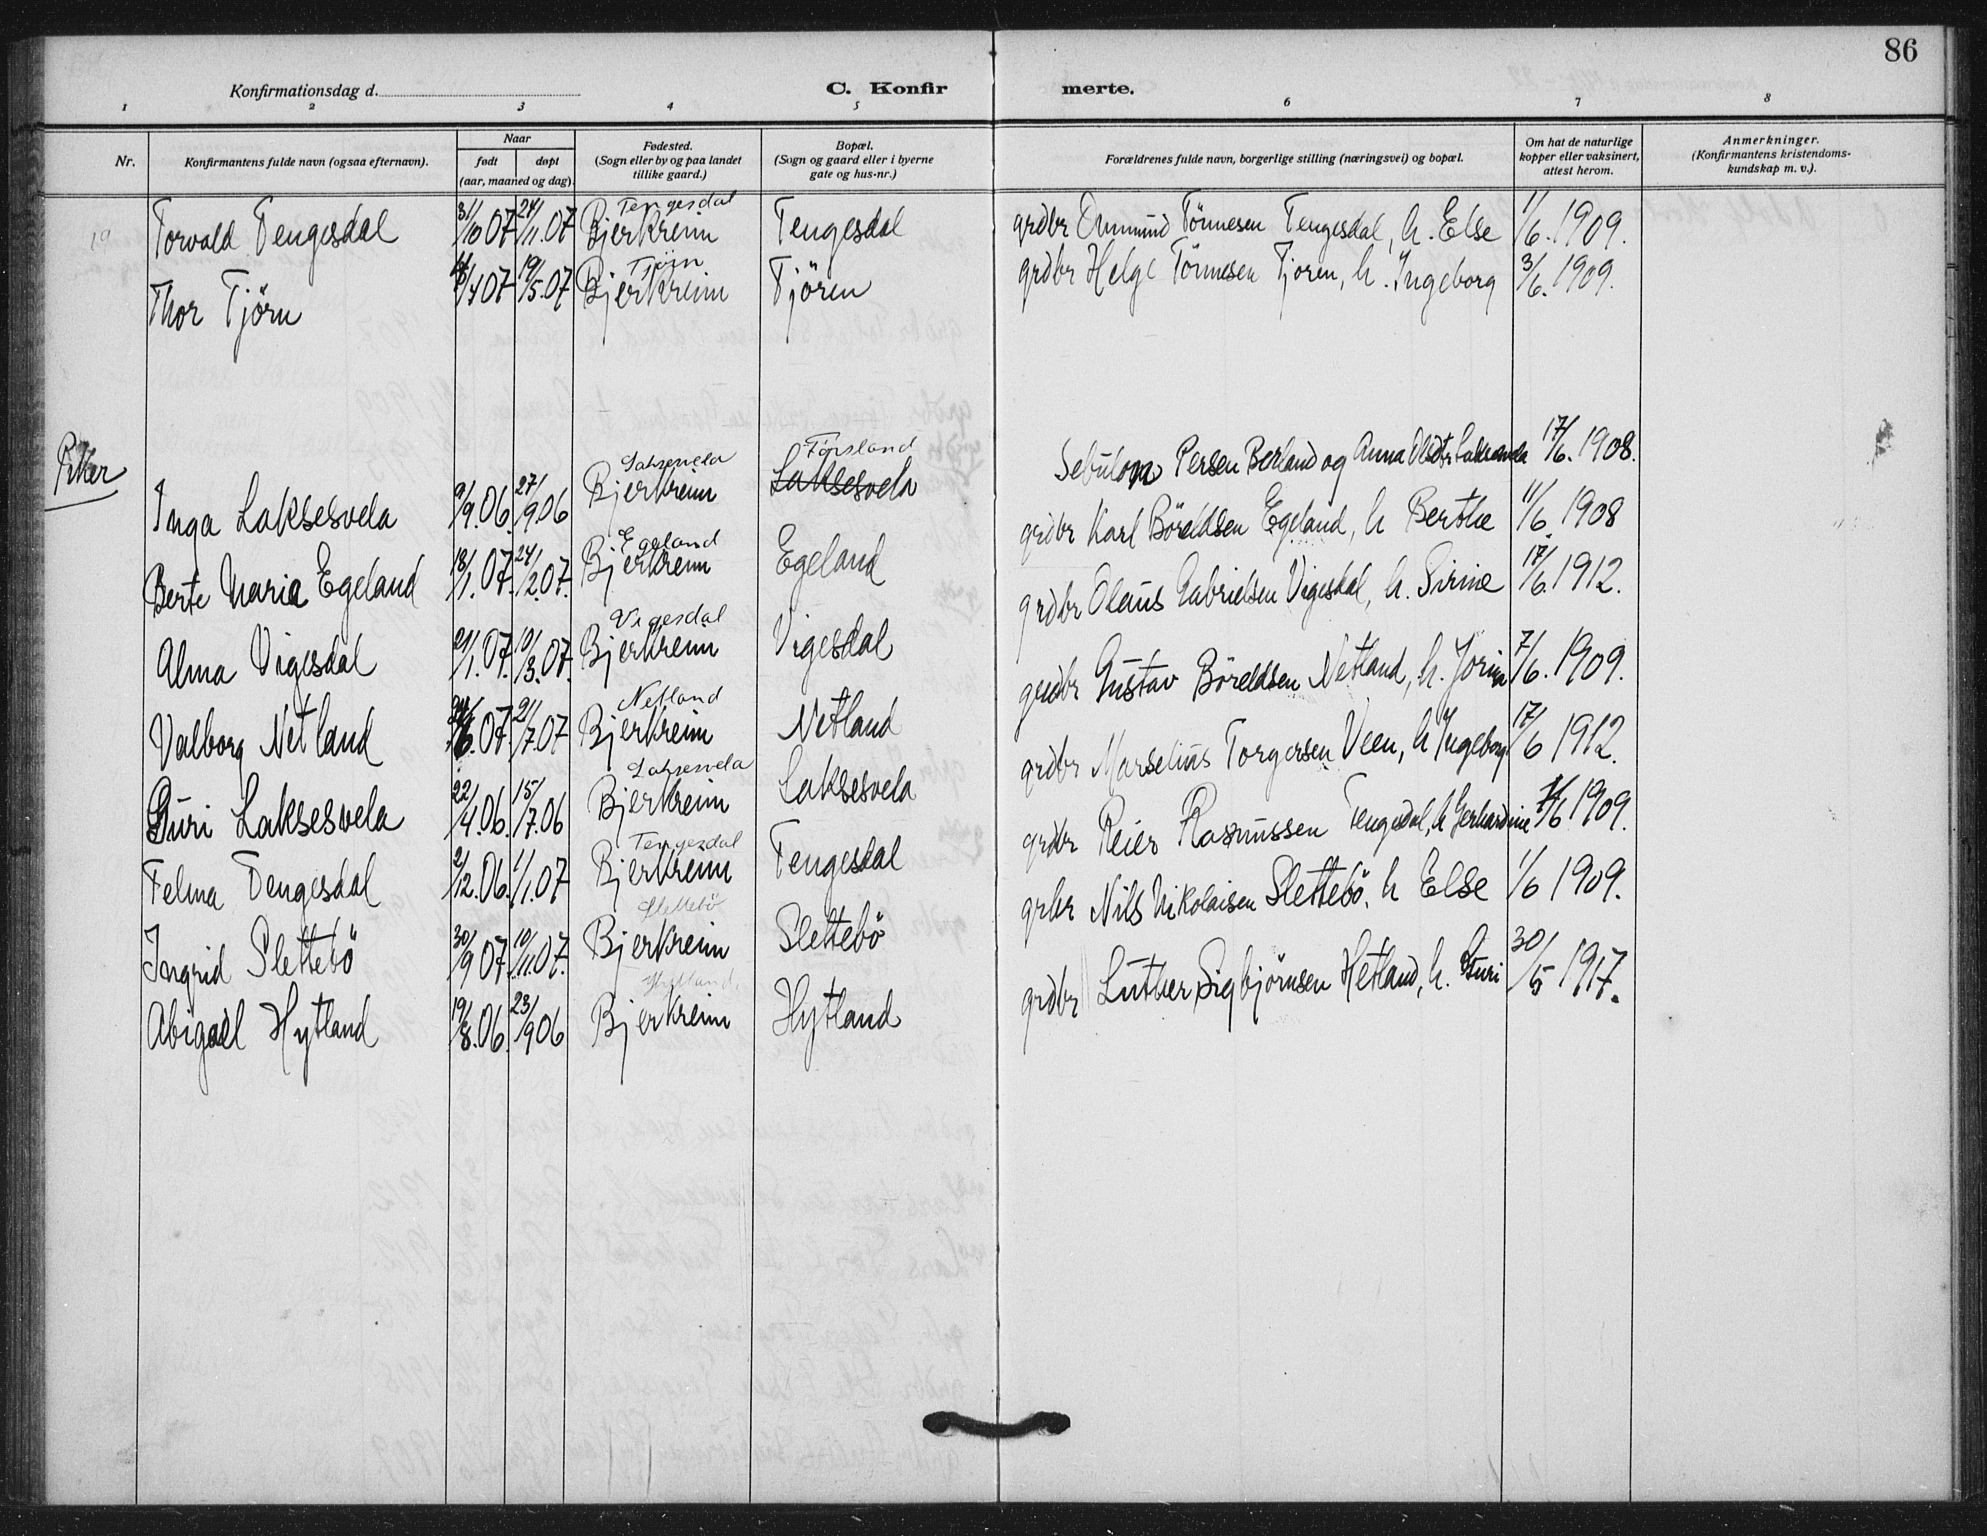 86
Konfirmationsdag d. C. Konfirmerte.
1 2 3 4 5 6 7 8
Nr. Konfirmantens fulde navn (ogsaa efternavn). Naar født døpt (aar, maaned og dag) Fødested. (Sogn eller by og paa landet tillike gaard.) Bopæl. (Sogn og gaard eller i byerne gate og hus-nr.) Forældrenes fulde navn, borgerlige stilling (næringsvei) og bopæl. Om hat de naturlige kopper eller vaksinert, attest herom. Anmerkninger. (Konfirmantens kristendoms-kundskap m. v.).
19 Torvald Tengesdal 31/10 07 24/11.07 Bjerkreim Tengesdal Tengesdal grdbr Ommund Tönnesen Tengesdal, h. Else 1/6.1909.
Thor Tjörn /4 07 19/5.07 Bjerkreim Tjörn Tjören grdbr Helge Tönnesen Tjoren, h. Ingeborg 3/6.1909.
Piker
Inga Laksesvela 9/9.06. 27/9 06 Bjerkreim Laksesvela Laksesvela Försland Sebulon Persen Berland og Anna 17/6.1908.
Berte Maria Egeland 18/1.07. 24/2.07. Bjerkreim Egeland Egeland grdbr Karl Böreldsen Egeland, h Berthe 11/6.1908
Alma Vigesdal /1.07. 10/3.07. Bjerkreim Vigesdal Vigesdal grdbr Olaus Gabrielsen Vigesdal, h. Sirine 17/6.1912.
Valborg Netland /6.07 21/7.07 Bjerkreim Netland Netland grdbr Gustav Böreldsen Netland, h. Jorina 7/6.1909.
Guri Laksesvela 22/4.06. 15/7.06 Bjerkreim Laksesvela Laksesvela grdbr Marselius Torgersen Veen, h Ingeborg 17/6 1912.
Telma Tengesdal 2/12.06. 1/1.07 Bjerkreim Tengesdal Tengesdal grdbr Reier Rasmussen Tengesdal, h Gerhardine /6.1909.
Ingrid Slettebö 30/9 07 10/11.07. Bjerkreim Slettebö Slettebö grbr Nils Nikolaisen Slettebö, h Else 1/6 1909.
Abigael Hytland 19/8.06. 23/9 06 Bjerkreim Hytland. Hytland grdbr Luther Sigbjörnsen Hetland, h. Guri 30/5 1917.